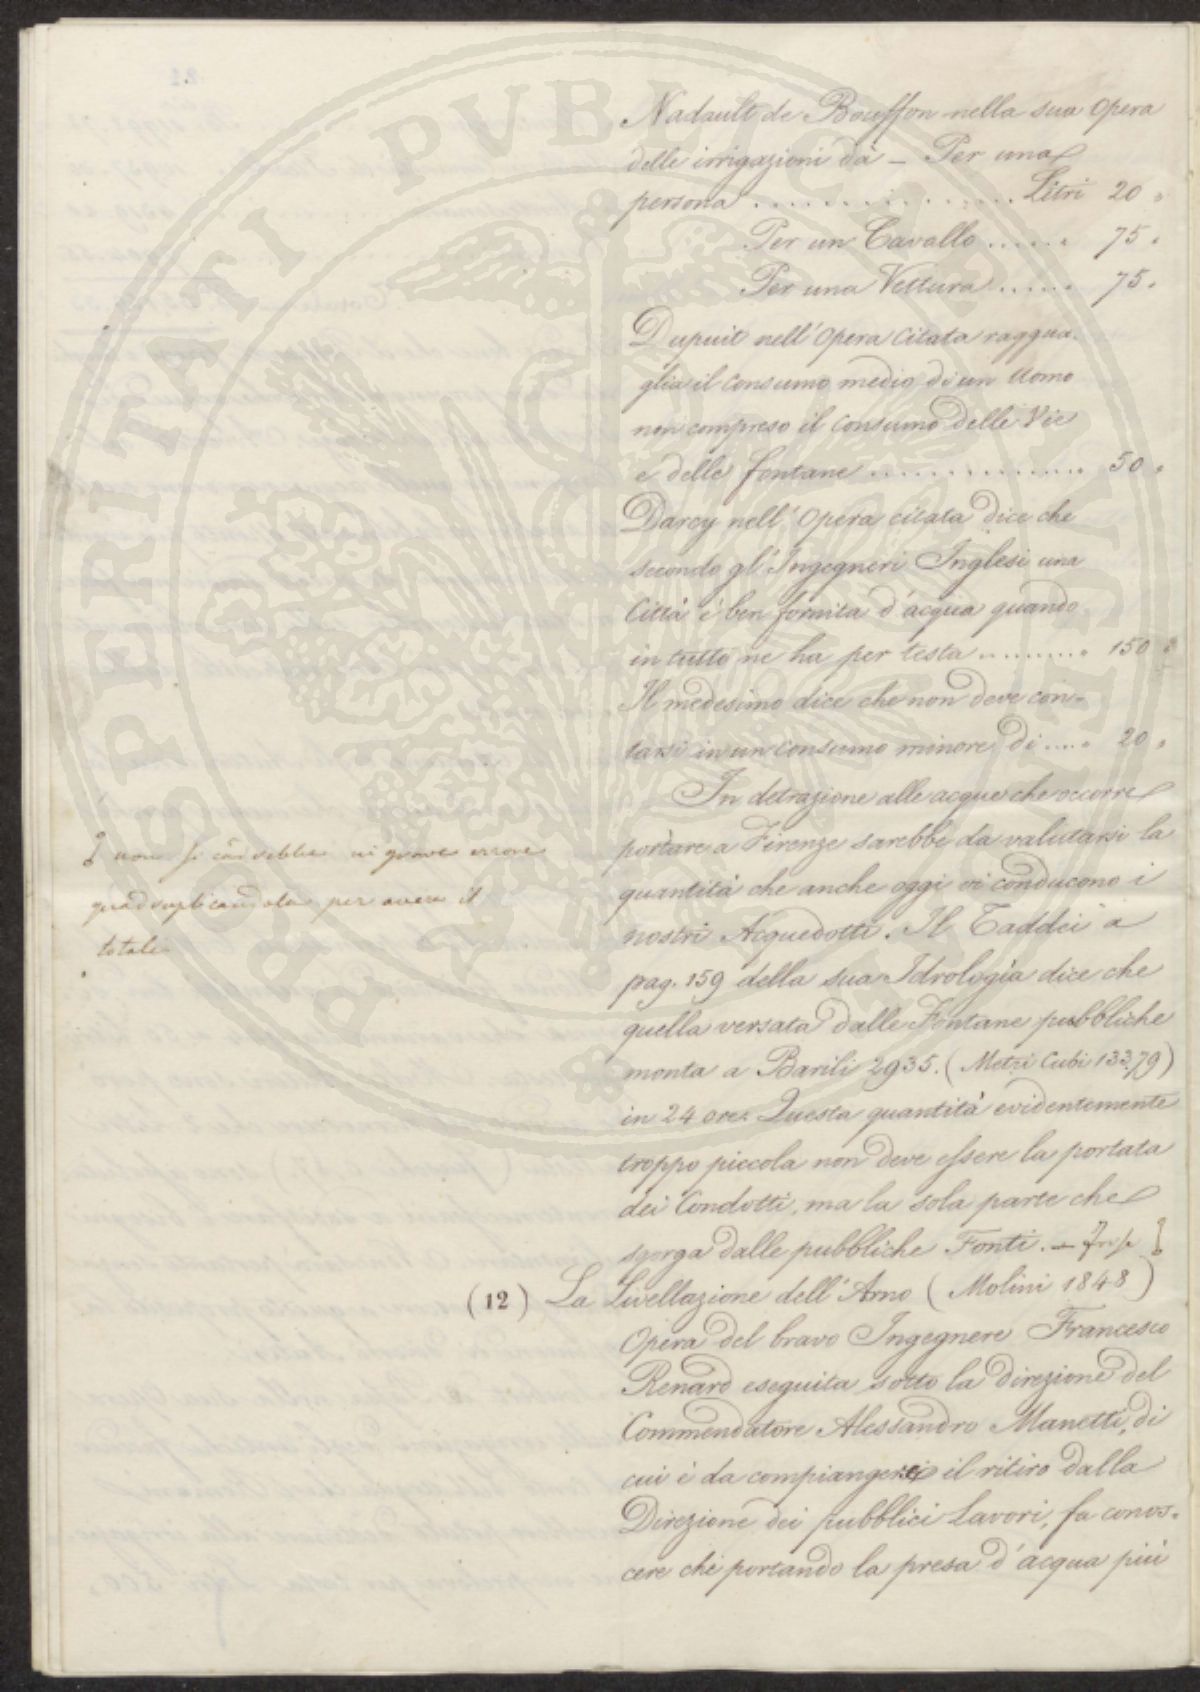 Nadault de Bouffon nella sua Opera
delle irrigazioni dà – Per una
persona .................. Litri 20 "
Per un Cavallo ...... " 75 "
Per una Vettura ..... " 75 "
Dupuit nell'Opera Citata raggua-
glia il consumo medio di un Uomo
non compreso il consumo delle Vie
e delle fontane ............... " 50 "
Darcy nell'Opera citata dice che
secondo gl'Ingegneri Inglesi una
Città è ben fornita d'acqua quando
in tutto ne ha per testa ........ " 150 "
Il medesimo dice che non deve con-
tarsi in un consumo minore di .... " 20 "
In detrazione alle acque che occorre
portare a Firenze sarebbe da valutarsi la
quantità che anche oggi vi conducono i
nostri Acquedotti. Il Taddei a
pag. 159 della sua Idrologia dice che
quella versata dalle Fontane pubbliche
monta a Barili 2935. (Metri Cubi 133.79)
in 24 ore. Questa quantità evidentemente
troppo piccola non deve essere la portata
dei Condotti, ma la sola parte che
sgorga dalle pubbliche Fonti. – Forse
non si cadrebbe in grave errore
quadruplicandola per avere il
totale
(12) La Livellazione dell'Arno (Molini 1848)
Opera del bravo Ingegnere Francesco
Renard eseguita sotto la direzione del
Commendatore Alessandro Manetti, di
cui è da compiangersi il ritiro dalla
Direzione dei pubblici Lavori, fa conos-
cere che portando la presa d'acqua più
PROSPERITATI PVBLICAE